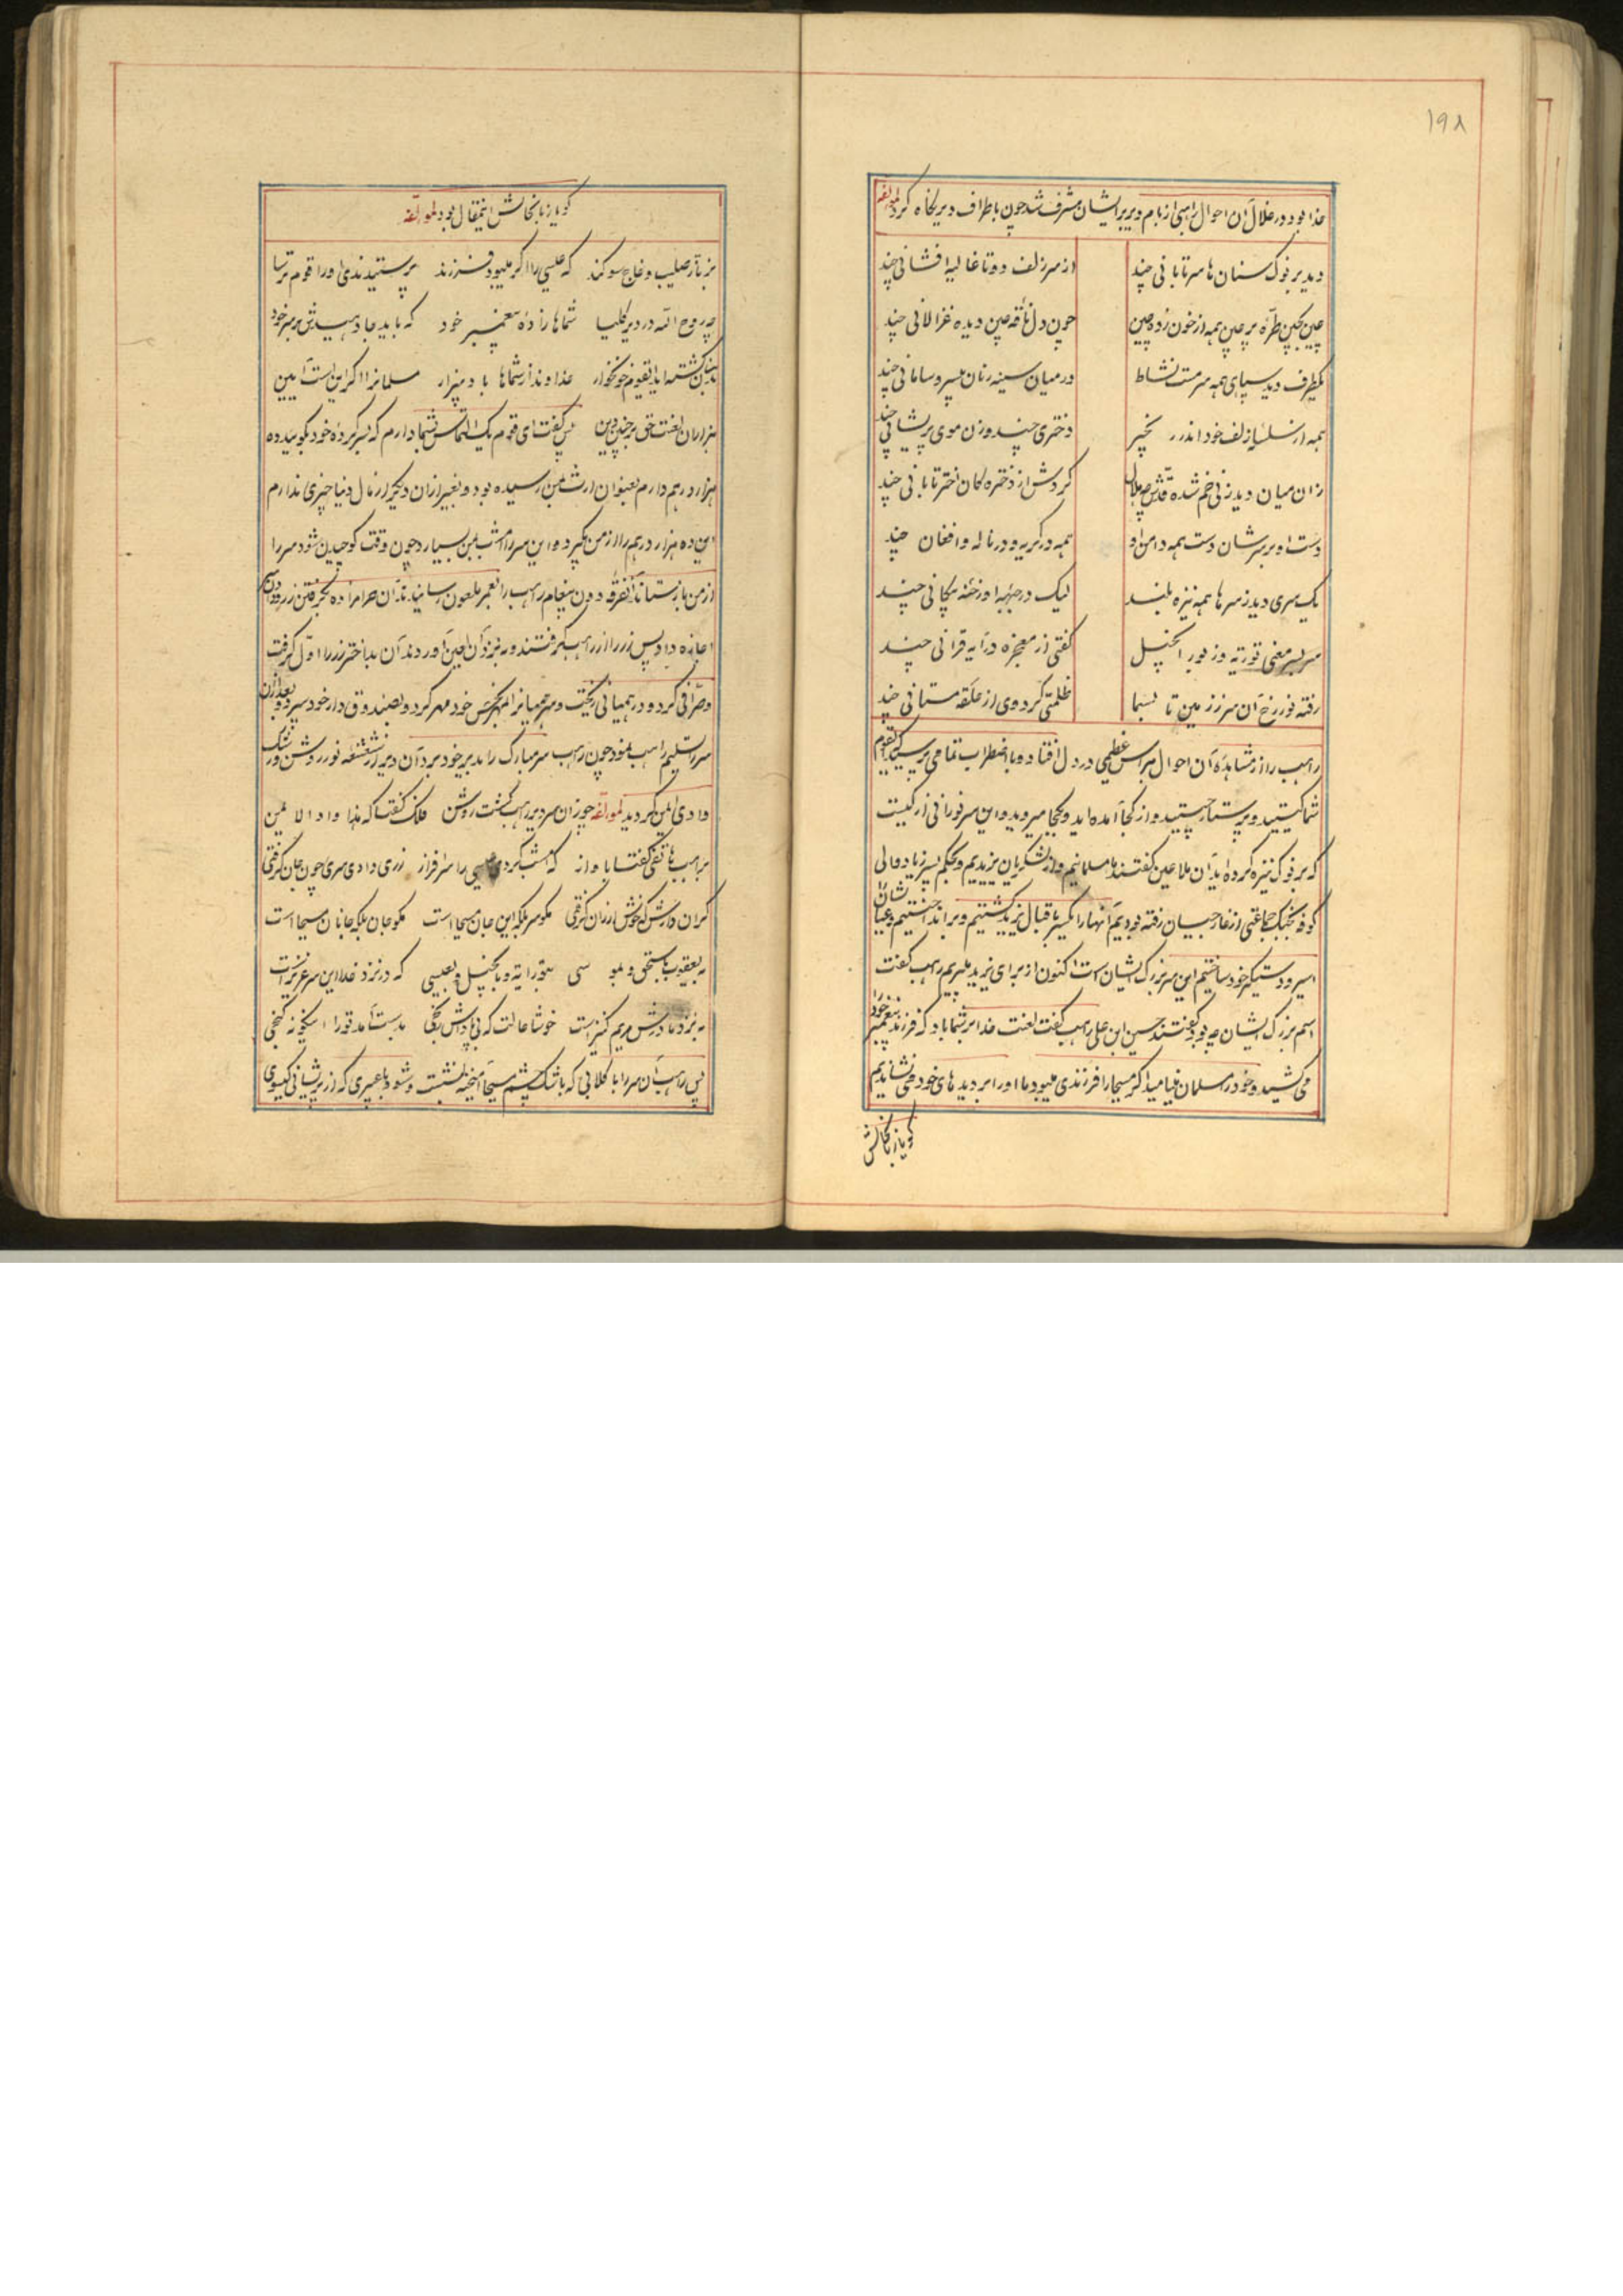 ۱۹۸
خدا بود در خلال آن احوال راهبی از بام دیر بر ایشان مشرف شد چون باطراف دیر نگاه کرد لمؤلفه
دید بر نوک سنان ها سر تابانی چند از سر زلف دوتا غالیه افشانی چند
چین بچین طره پر چین همه از خون زده چین چون دل نافه چین دیده غزالانی چند
یکطرف دید سپاهی همه سرمست نشاط در میان سینه زنان بیسر و سامانی چند
همه از سلسله زلف خود اندر زنجیر دختری چند و زن موی پریشانی چند
زان میان دید زنی خم شده قدش چو هلال گردش از دختره کان اختر تابانی چند
دست او بر سرشان دست همه دامن او همه در گریه و در ناله و افغان چند
یک سری دید ز سرها همه نیزه بلند لیک در جبهه او رخنه پیکانی چند
سر بسر معنی توریة و زبور انجیل گفتی از معجزه در آیه قرآنی چند
رفته نور رخ آن سر ز زمین تا بسما ظلمتی گرد وی از حلقه مستانی چند
راهب را از مشاهده آن احوال هراس عظیمی در دل افتاد و با اضطراب تمامی پرسید که ایقوم
شما کیستید و پرستار چیستید و از کجا آمده اید و بکجا میروید و این سر نورانی از کیست
که بر نوک نیزه کرده اید آن ملاعین گفتند ما مسلمانیم و از لشکریان یزیدیم و بحکم پسر زیاد والی
کوفه بجنگ جماعتی از غازیان رفته بودیم آنها را یکسر باقبال یزید کشتیم و بر انداختیم و عیالشانرا
اسیر و دستگیر خود ساختیم این سر بزرگ ایشان است اکنون از برای یزید میبریم راهب گفت
اسم بزرگ ایشان چه بود گفتند حسین ابن علی راهب گفت لعنت خدا بر شما باد که فرزند پیغمبر خود را
می کشید و خود را مسلمان مینامید اگر مسیح را فرزندی میبود ما او را بر دیده های خود می نشاندیم
گویا زبانحالش
گویا زبانحالش اینمقال بود لمؤلفه
بزنار صلیب و خاج سوگند که عیسی را اگر میبود فرزند پرستیدندی او را قوم ترسا
چه روح الله در دیر کلیسا شما ها زاده پیغمبر خود که باید جا دهیدش بر سر خود
بدینسان کشته اید ایقوم خونخوار خداوند از شماها باد بیزار مسلمانرا اگر اینست آیین
هزاران لعنت حق بر چنین دین پس گفت ای قوم یک التماس بشما دارم که بسرکرده خود بگویید ده
هزار درهم دارم بعنوان ارث بمن رسیده بود و بغیر از آن دیگر از مال دنیا چیزی ندارم
این ده هزار درهم را از من بگیرد و این سر را امشب بمن بسپارد چون وقت کوچیدن شود سر را
از من باز ستاند آنفرقه دون پیغام راهب را بعمر ملعون رسانیدند آن حرامزاده بگرفتن زر و دادن سر
اجازه داد پس زر را از راهب گرفتند و به نزد آن لعین آوردند آن بد اختر زر را اول گرفت
و صرافی کرد و در همیانی ریخت و سر همیانرا بمهر نجس خود مهر کرد و بصندوق دار خود سپرد و بعد از آن
سر را تسلیم راهب نمود چون راهب سر مبارک را بدیر خود برد آن دیر از شعشعه نور روشن و رشک
وادی ایمن گردید لمؤلفه چو زان سر دیر راهب گشت روشن فلک گفتا که هذا واد الایمن
براهب هاتفی گفتا باواز که امشب کردی عیسی را سرافراز زری دادی سری چون جان گرفتی
گران دادش که خوش ارزان گرفتی مگو سر بلکه این جان مسیحا است مگو جان بلکه جانان مسیحا است
به یعقوب باسحق و بموسی بتورایة و بانجیل و بعیسی که در نزد خدا این سر عزیز است
به نزد مادرش مریم کنیز است خوشا حالت که بی پاداش رنجی بدست آمد تو را اینگونه گنجی
پس راهب آن سر را با گلابی که باشک چشم مسیحا آمیخته بشست و شو داد با عبیری که از پریشانی گیسوی